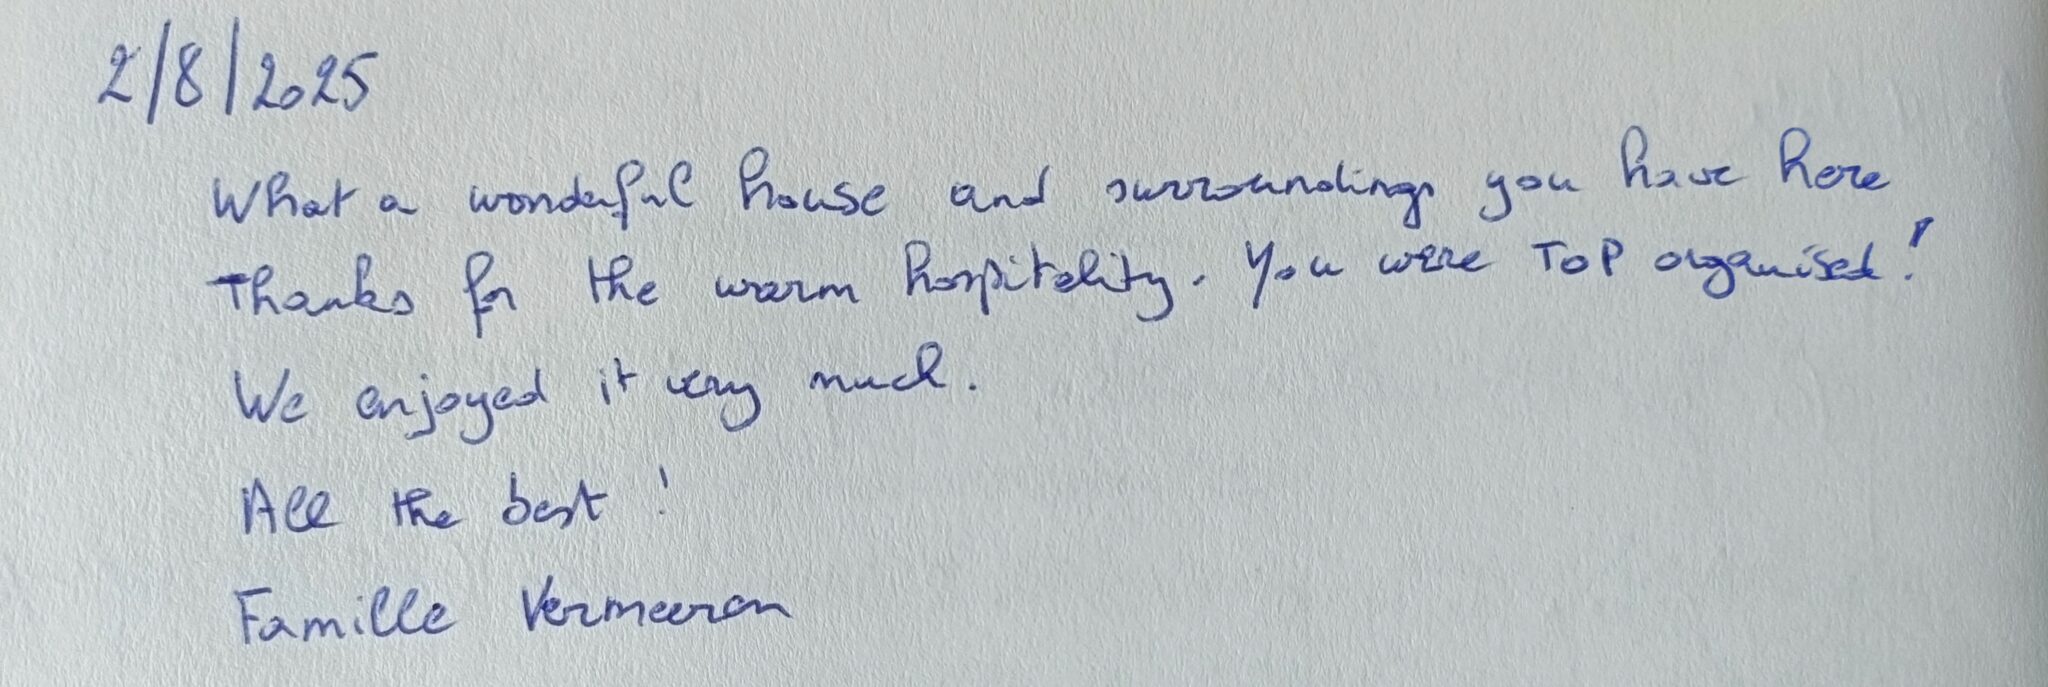 2/8/2025
What a wonderful house and surroundings you have here
Thanks for the warm hospitality. You were TOP organised!
We enjoyed it very much.
All the best!
Famille Vermeeren